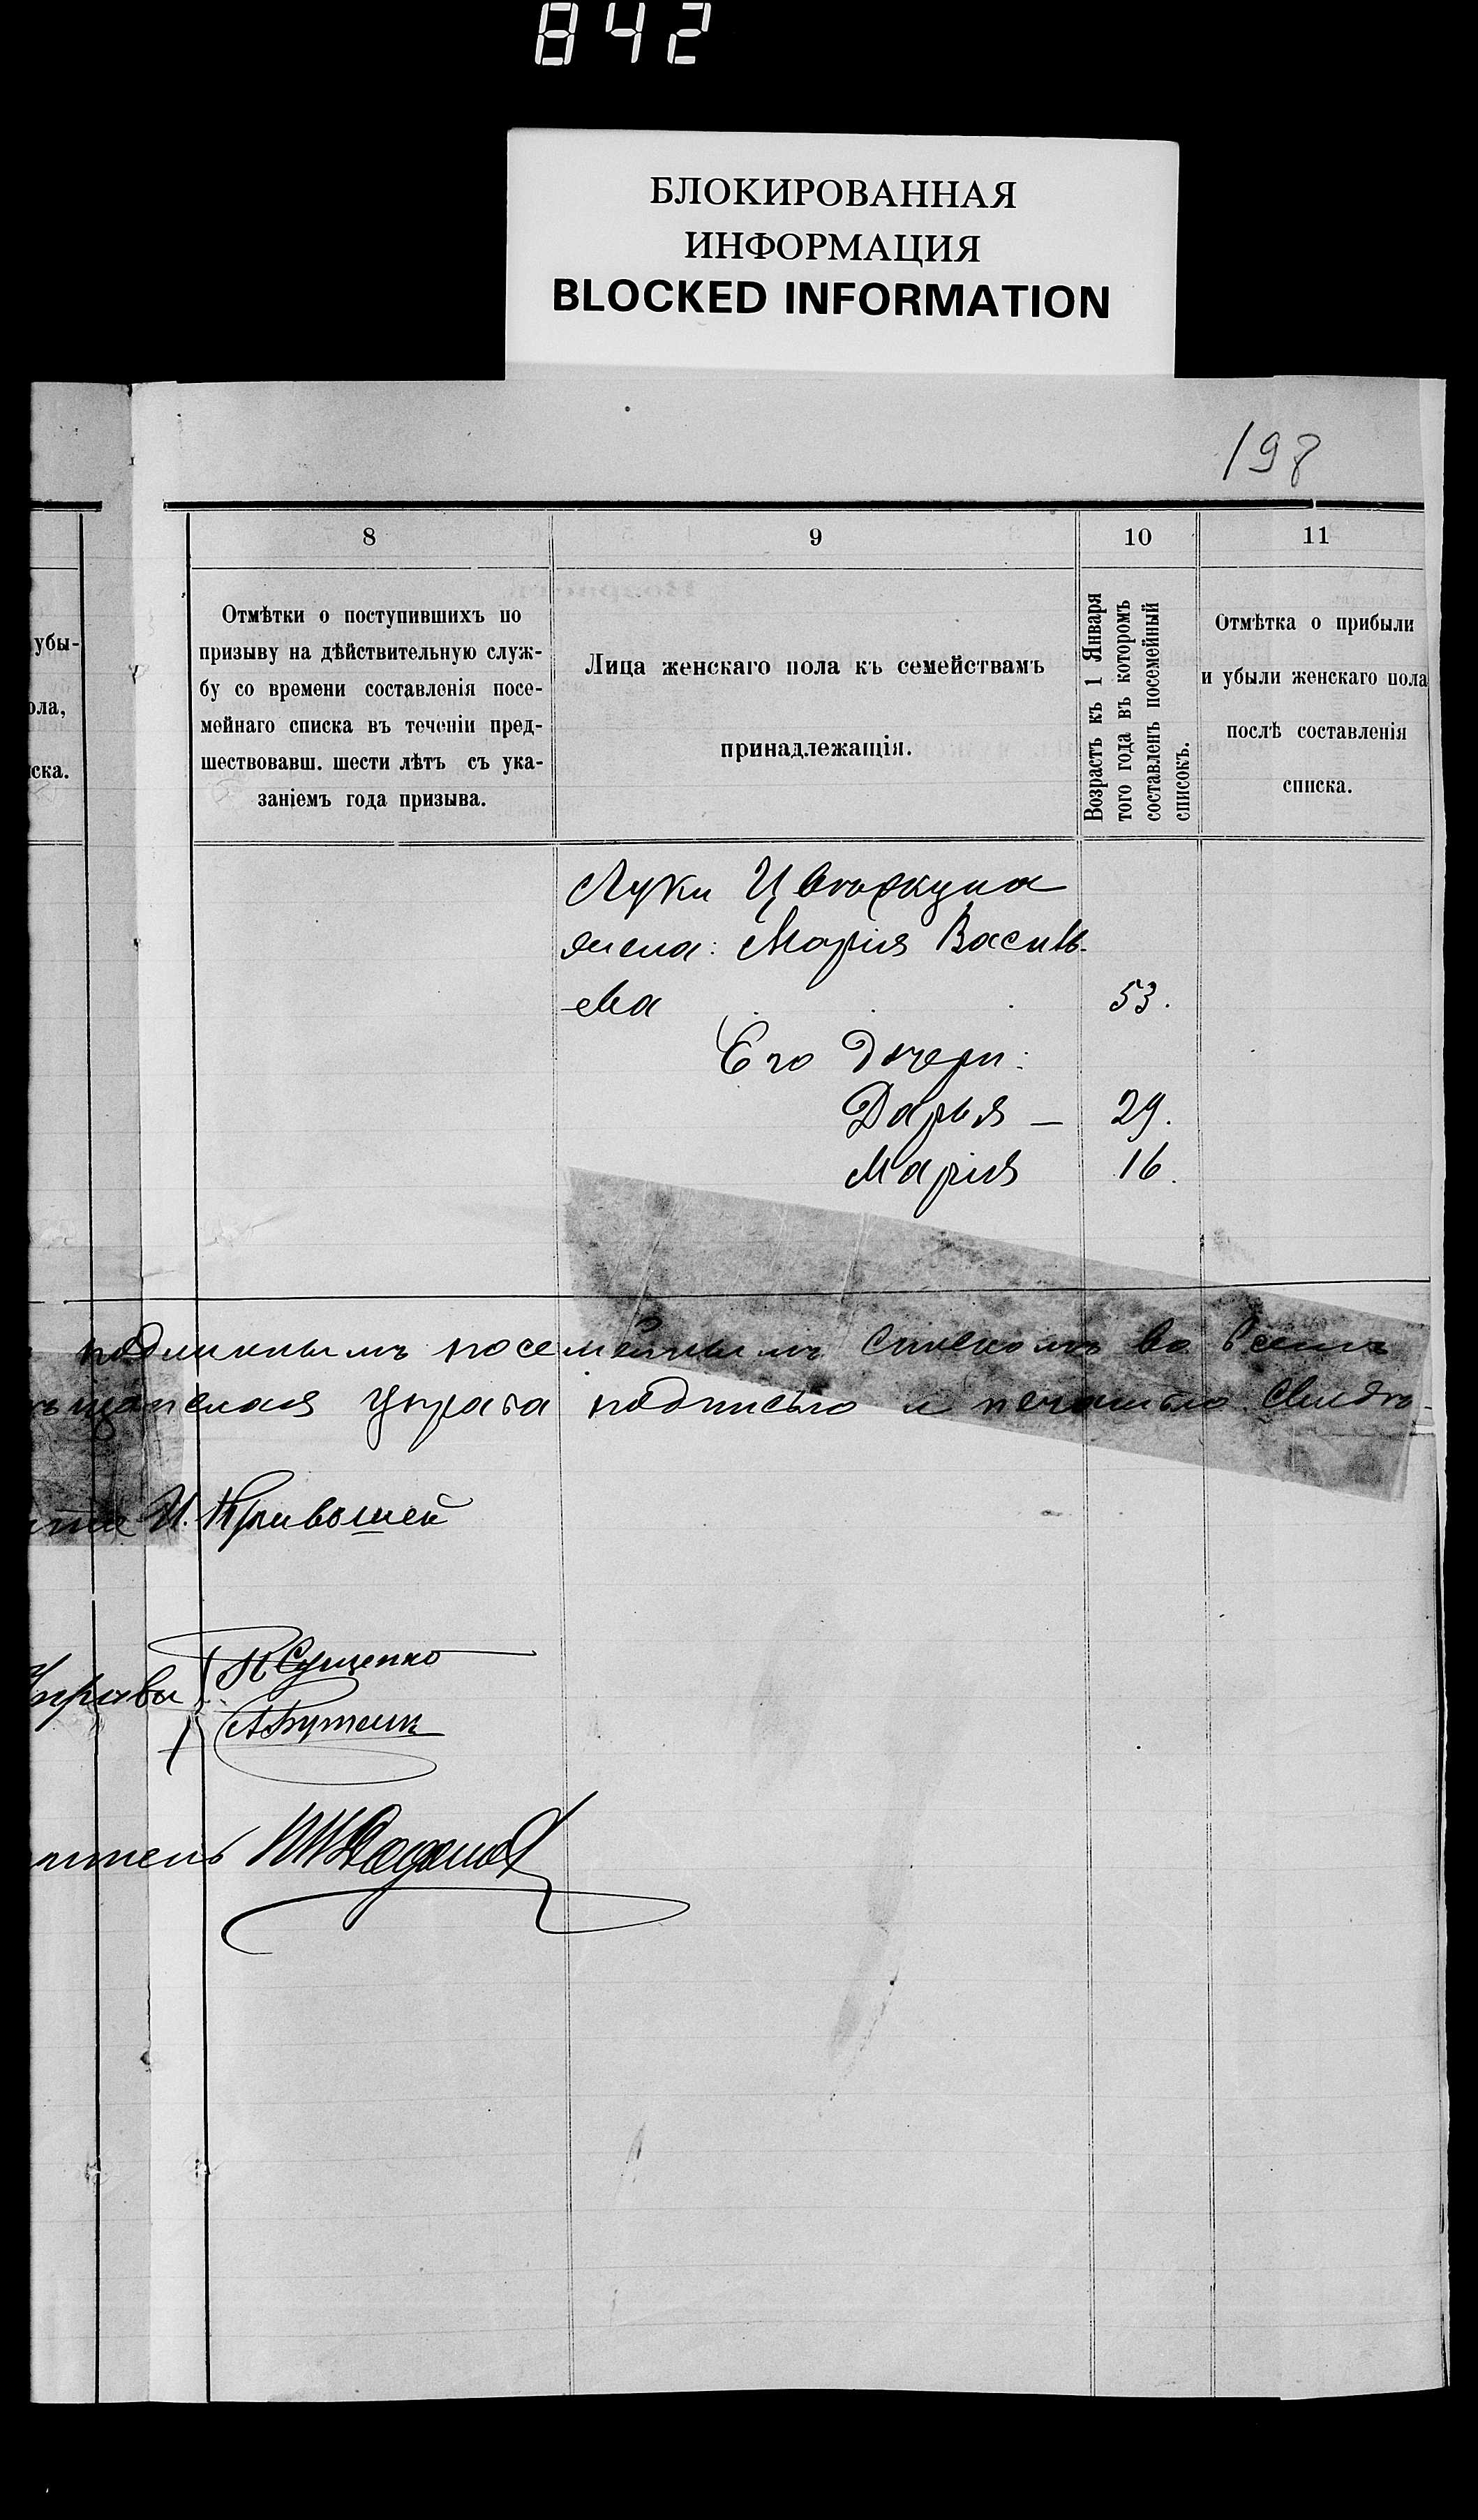 842
БЛОКИРОВАННАЯ
ИНФОРМАЦИЯ
BLOCKED INFORMATION
198
8
9
10
11
убы-
ола,
иска.
Отмѣтки о поступившихъ по
призыву на дѣйствительную служ-
бу со времени составленія посе-
мейнаго списка въ теченіи пред-
шествовавш. шести лѣтъ съ ука-
заніемъ года призыва.
Лица женскаго пола къ семействамъ
принадлежащія.
Возрастъ къ 1 Января
того года въ которомъ
составленъ посемейный
списокъ.
Отмѣтка о прибыли
и убыли женскаго пола
послѣ составленія
списка.
Луки
жена: Марія Василь-
ева 53.
Его дочери:
Дарья — 29.
Марія 16.
подлиннымъ посемейнымъ спискомъ во всемъ
Управа подписью и печатью свидѣ-
И.
Управы
Сущенко